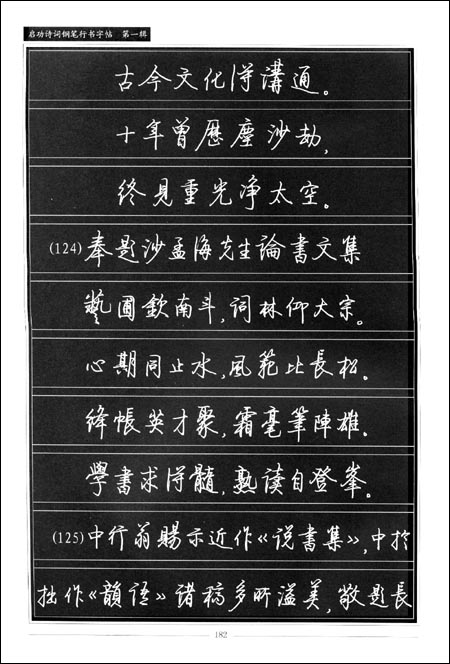 启功诗词钢笔行书字帖 第一辑
古今文化得溝通。
十年曾歷塵沙劫,
終見重光净太空。
(124)奉题沙孟海先生論書文集
藝圃欽南斗,词林仰大宗。
心期同止水,風範比長松。
絳帳英才聚,霜毫筆陣雄。
學書求得髓,熟读自登峯。
(125)中行翁賜示近作《说書集》,中於
拙作《韻语》诸稿多所溢美,敬题長
182